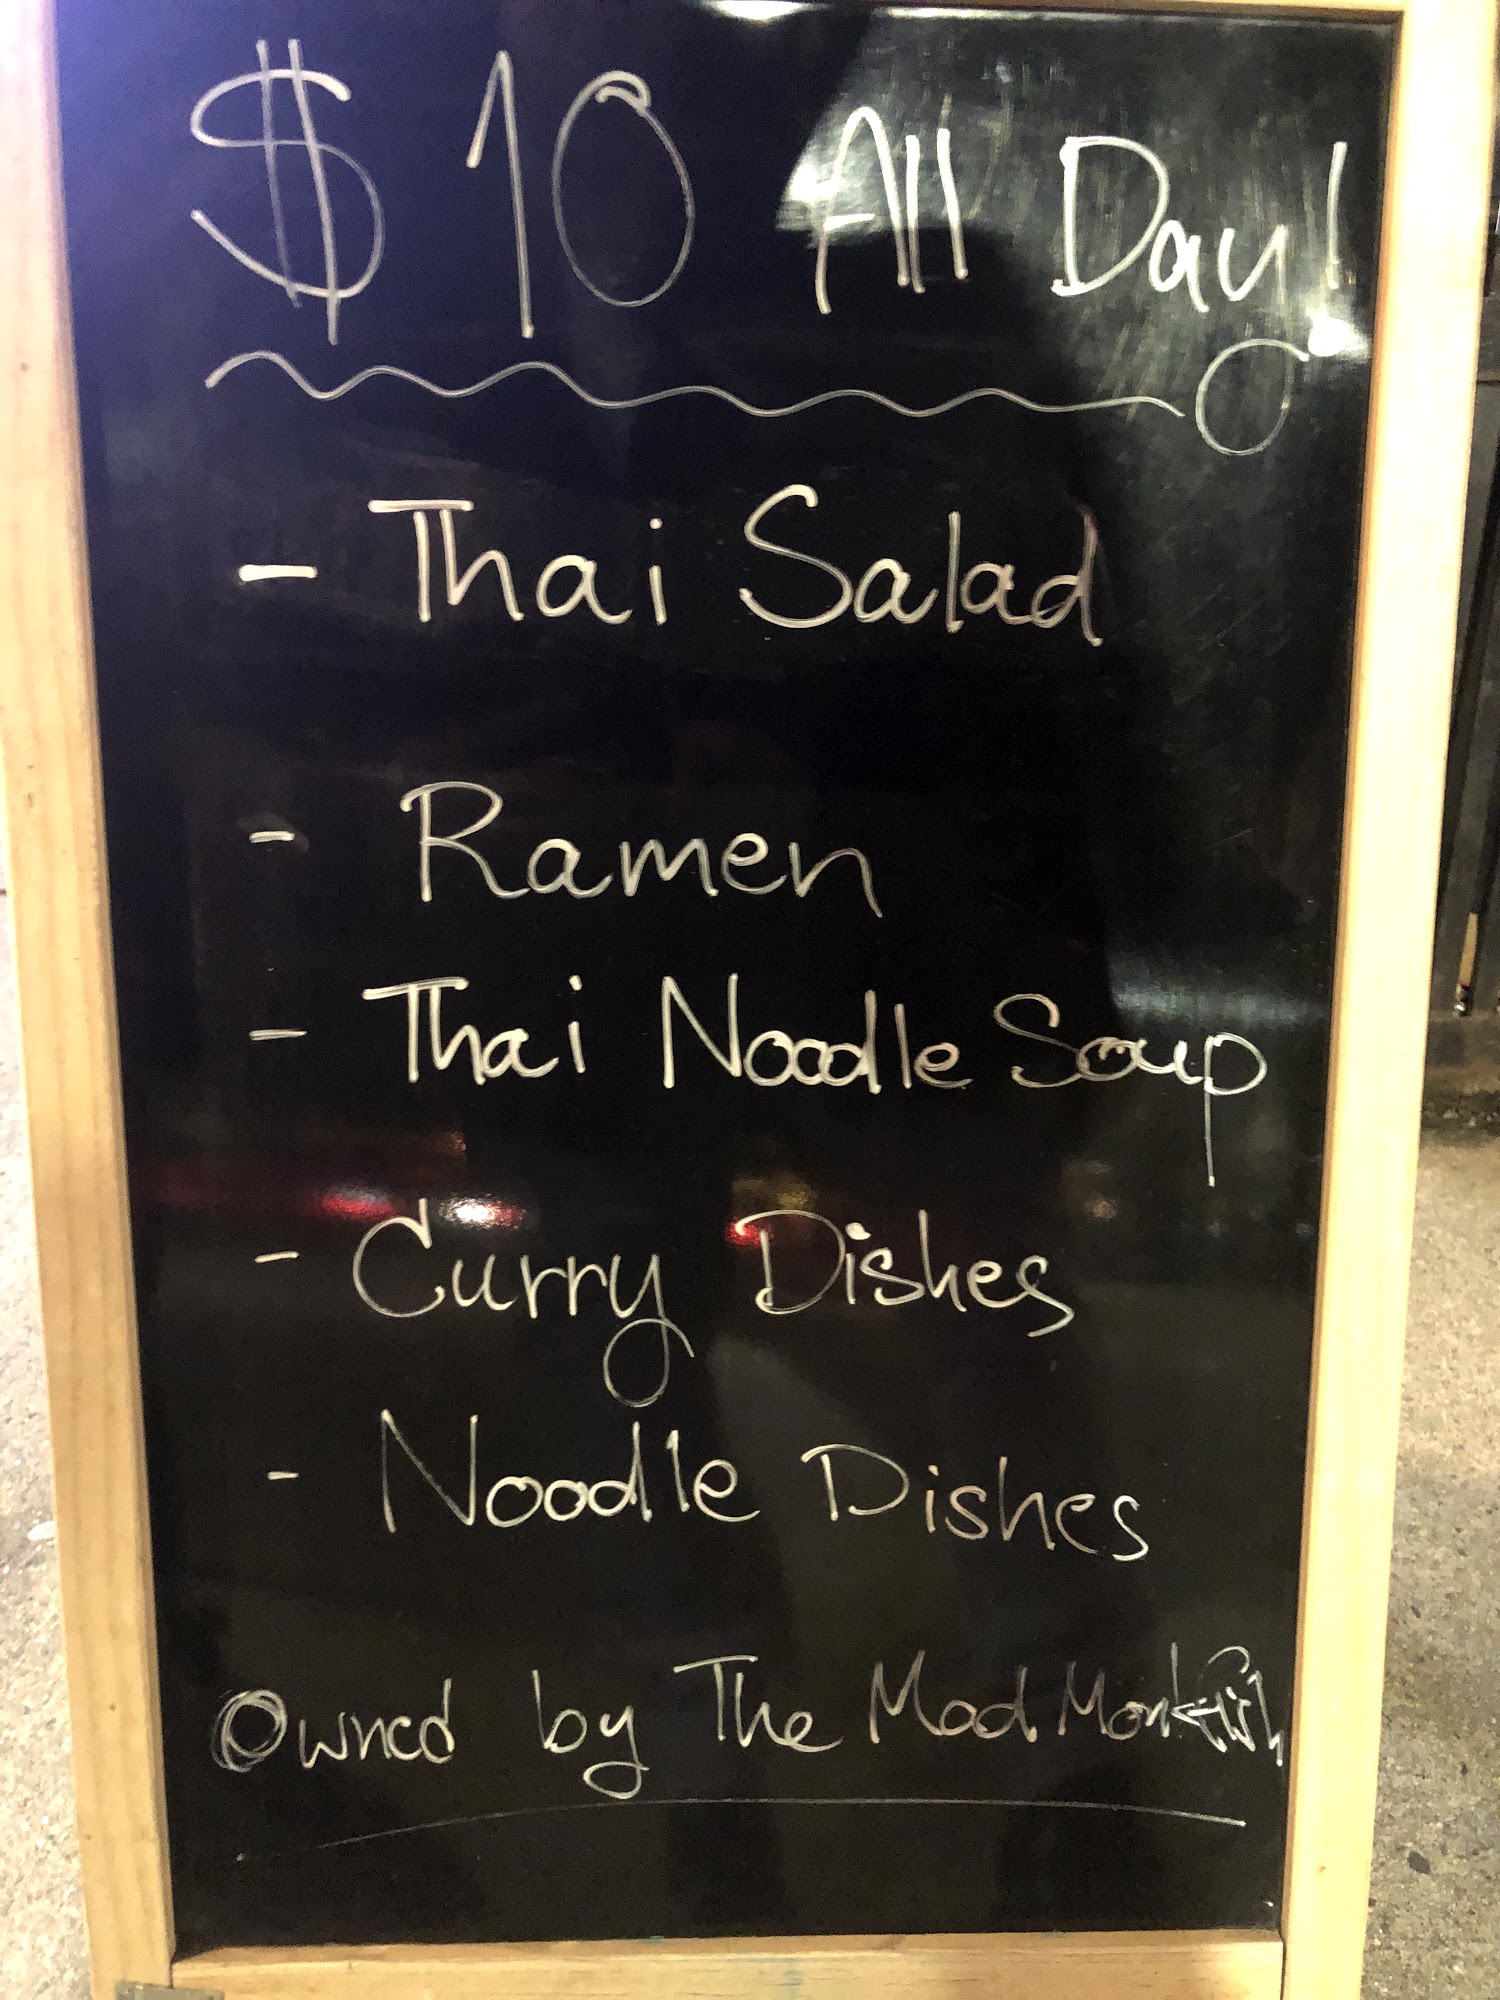 $10 All Day!
- Thai Salad
- Ramen
- Thai Noodle Soup
- Curry Dishes
- Noodle Dishes
Owned by The Mad Monkfish